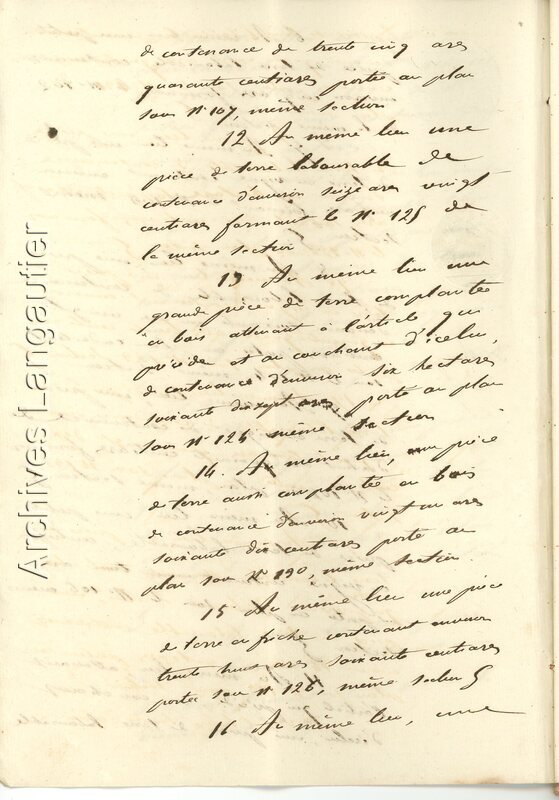 de contenance de trente cinq ares
quarante centiares portée au plan
sous N° 107, même section
12 Au même lieu une
pièce de terre labourable de
contenance d'environ seize ares vingt
centiares formant le N° 125 de
la même section
13 Au même lieu une
grande pièce de terre complantée
en bois attenant à l'article qui
précède et au couchant d'icelui,
de contenance d'environ six hectares
soixante dix sept ares, porté au plan
sous N° 124 même section
14. Au même lieu, une pièce
de terre aussi complantée en bois
de contenance d'environ vingt un ares
soixante dix centiares porté au
plan sous N° 190, même section.
15 Au même lieu une pièce
de terre en friche contenant environ
trente huit ares soixante centiares
portée sous N° 126, même section
16 Au même lieu, une
Archives Langautier